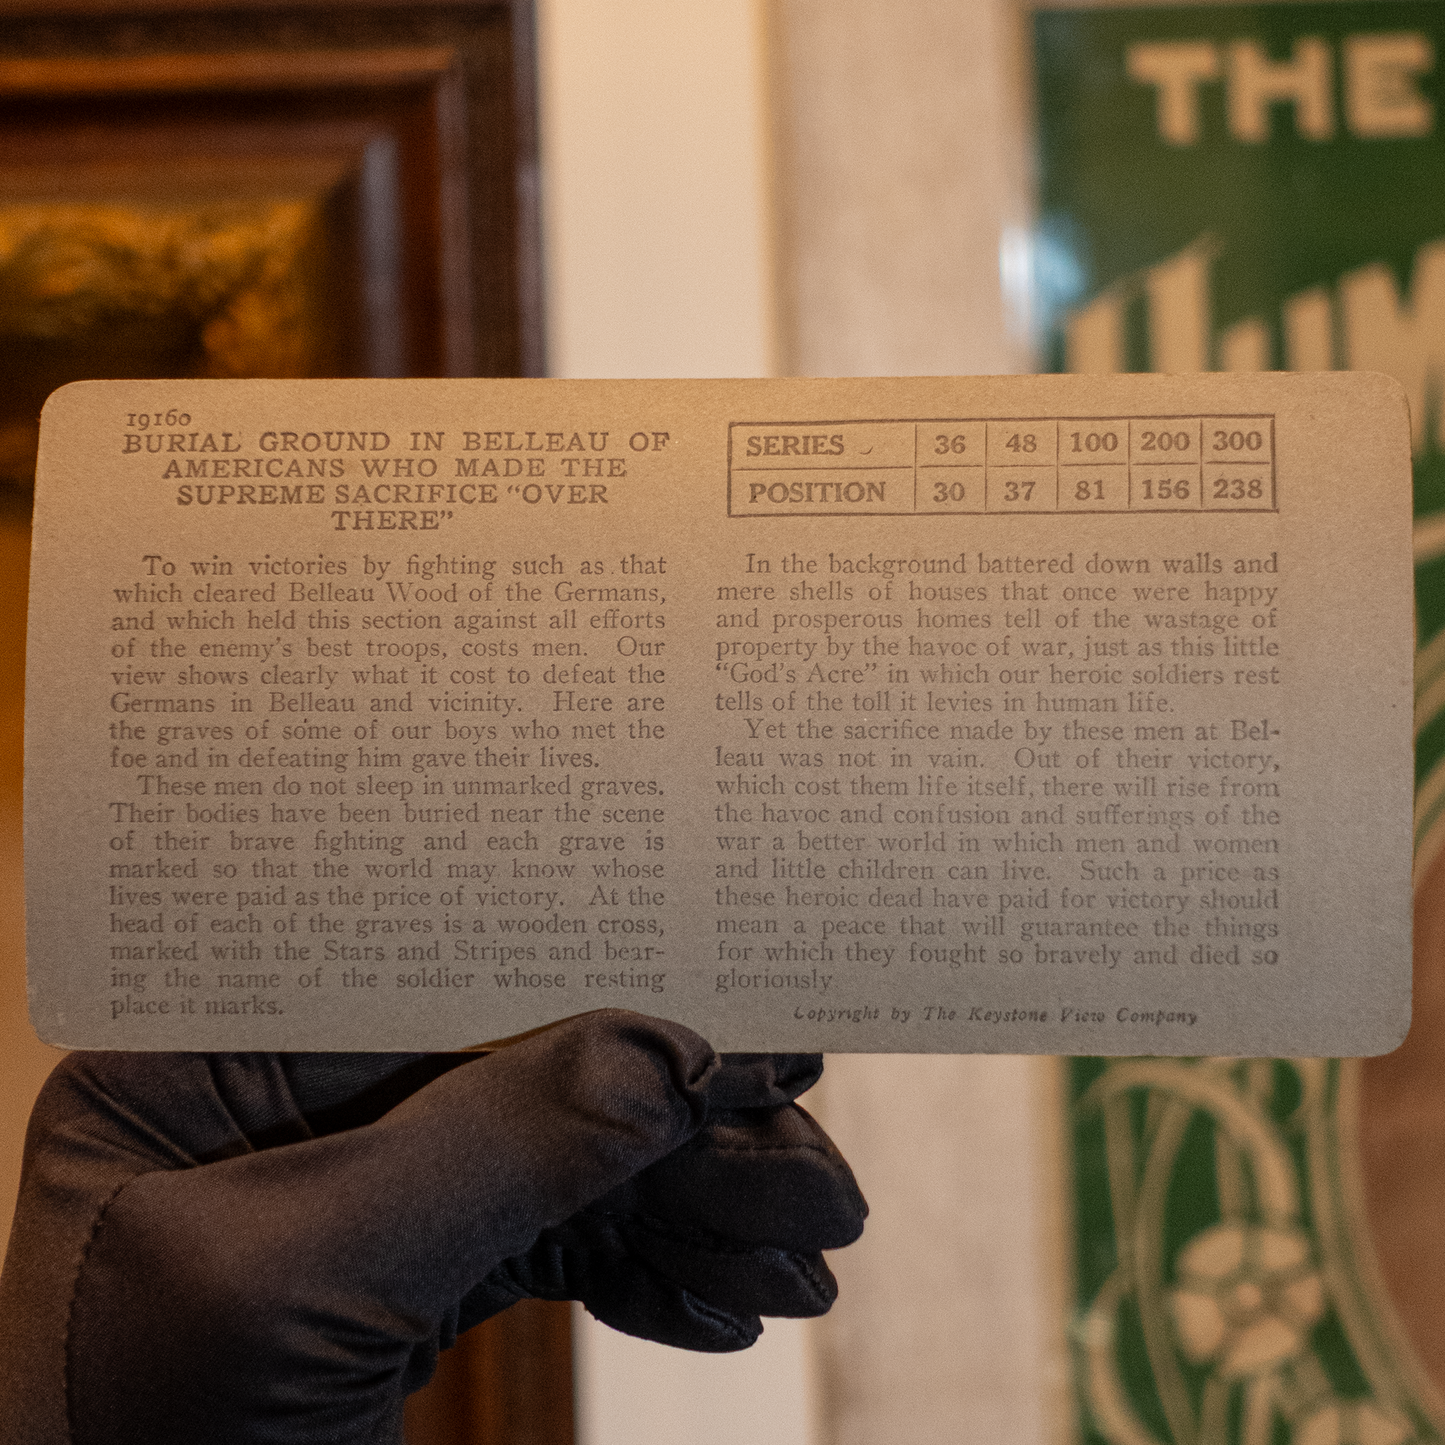 THE
19160
BURIAL GROUND IN BELLEAU OF
AMERICANS WHO MADE THE
SUPREME SACRIFICE “OVER
THERE”
To win victories by fighting such as that
which cleared Belleau Wood of the Germans,
and which held this section against all efforts
of the enemy's best troops, costs men. Our
view shows clearly what it cost to defeat the
Germans in Belleau and vicinity. Here are
the graves of some of our boys who met the
foe and in defeating him gave their lives.
These men do not sleep in unmarked graves.
Their bodies have been buried near the scene
of their brave fighting and each grave is
marked so that the world may know whose
lives were paid as the price of victory. At the
head of each of the graves is a wooden cross,
marked with the Stars and Stripes and bear-
ing the name of the soldier whose resting
place it marks.
SERIES 36 48 100 200 300
POSITION 30 37 81 156 238
In the background battered down walls and
mere shells of houses that once were happy
and prosperous homes tell of the wastage of
property by the havoc of war, just as this little
“God's Acre” in which our heroic soldiers rest
tells of the toll it levies in human life.
Yet the sacrifice made by these men at Bel-
leau was not in vain. Out of their victory,
which cost them life itself, there will rise from
the havoc and confusion and sufferings of the
war a better world in which men and women
and little children can live. Such a price as
these heroic dead have paid for victory should
mean a peace that will guarantee the things
for which they fought so bravely and died so
gloriously
Copyright by The Keystone View Company